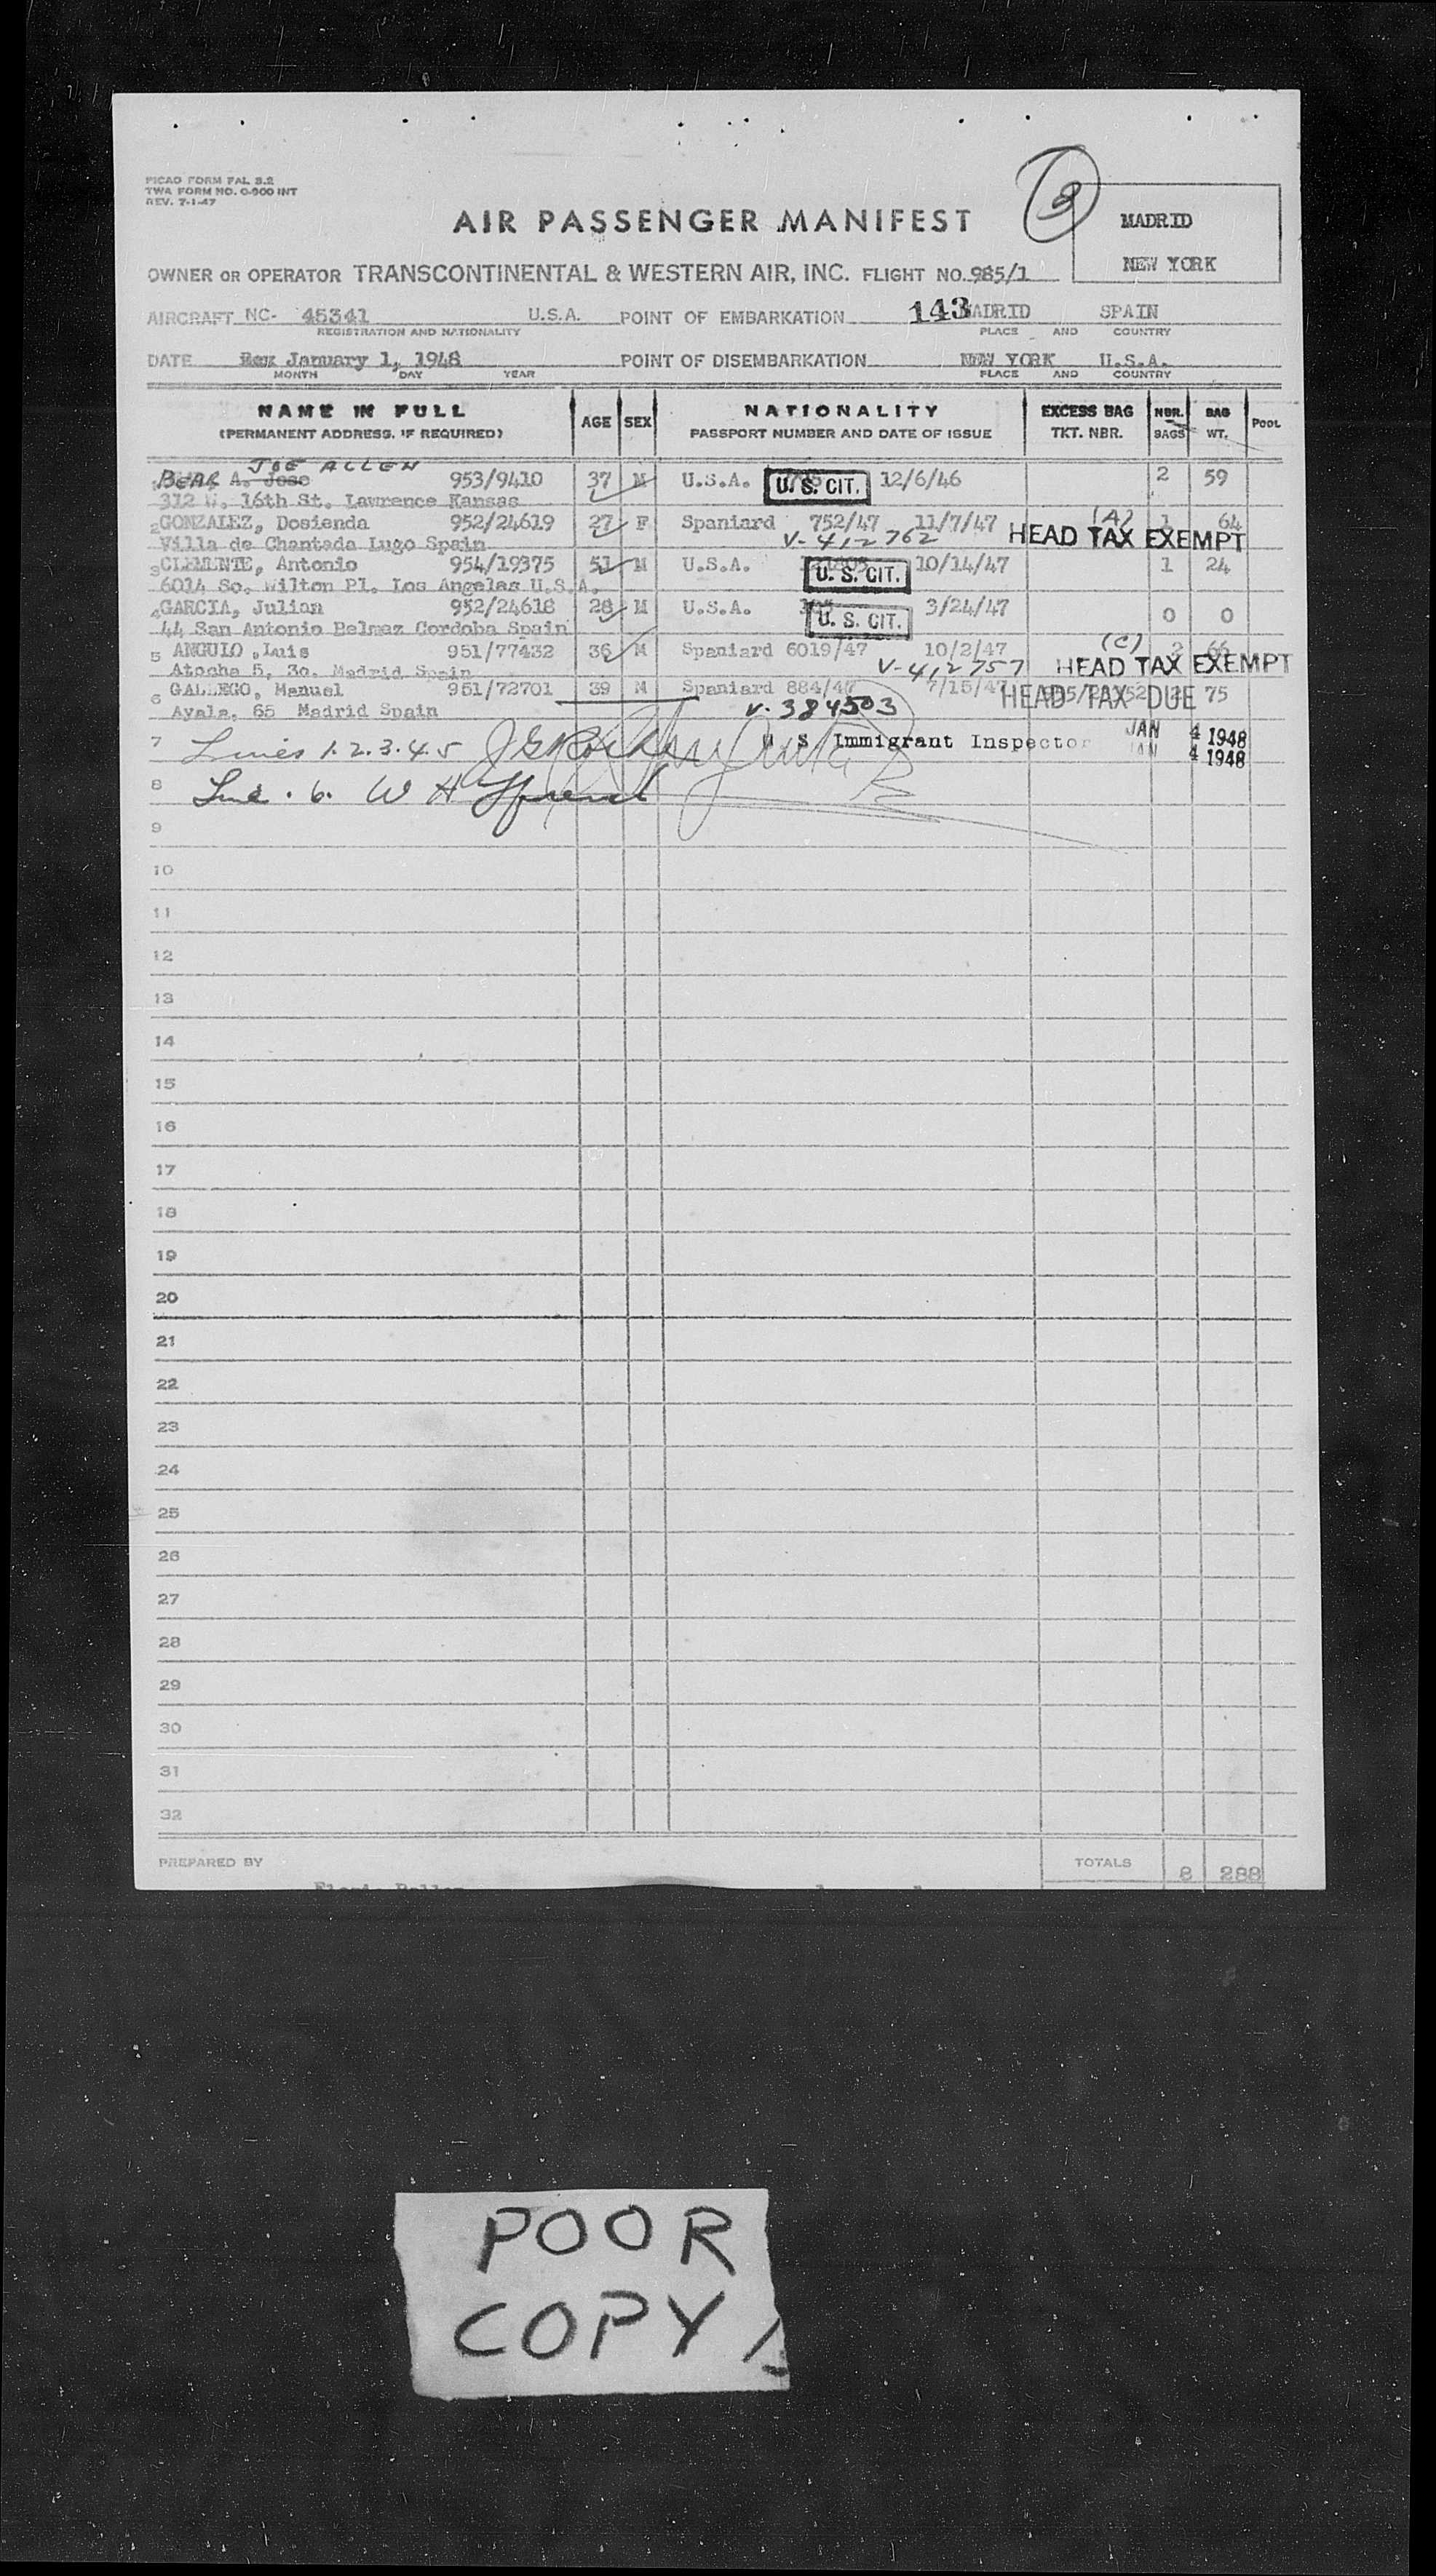 PICAO FORM FAL 3.2
TWA FORM NO. O-900 INT
REV. 7-1-47
3
AIR PASSENGER MANIFEST
MADRID
NEW YORK
OWNER OR OPERATOR TRANSCONTINENTAL & WESTERN AIR, INC. FLIGHT NO. 985/1
AIRCRAFT NC- 45341 U.S.A. POINT OF EMBARKATION 143 MADRID SPAIN
REGISTRATION AND NATIONALITY PLACE AND COUNTRY
DATE January 1, 1948 POINT OF DISEMBARKATION NEW YORK U.S.A.
MONTH DAY YEAR PLACE AND COUNTRY
NAME IN FULL AGE SEX NATIONALITY EXCESS BAG NBR. BAG POOL
(PERMANENT ADDRESS, IF REQUIRED) PASSPORT NUMBER AND DATE OF ISSUE TKT. NBR. BAGS WT.
JOE ALLEN
BEAR A. Jose 953/9410 37 M U.S.A. U. S. CIT. 12/6/46 2 59
312 W. 16th St. Lawrence Kansas
2 GONZALEZ, Dosienda 952/24619 27 F Spaniard 752/47 11/7/47 (A) 1 64
Villa de Chantada Lugo Spain V-412762 HEAD TAX EXEMPT
3 CLEMENTE, Antonio 954/19375 51 M U.S.A. U. S. CIT. 10/14/47 1 24
6014 So. Wilton Pl. Los Angelas U.S.A.
4 GARCIA, Julian 952/24618 28 M U.S.A. U. S. CIT. 3/24/47 0 0
44 San Antonio Belmez Cordoba Spain
5 ANGULO ,Luis 951/77432 36 M Spaniard 6019/47 10/2/47 (C) 2 66
Atocha 5, 3o. Madrid Spain V-412757 HEAD TAX EXEMPT
6 GALLEGO, Manuel 951/72701 39 M Spaniard 884/47 7/15/47 HEAD TAX DUE 75
Ayala, 65 Madrid Spain V-384503
7 Lines 1.2.3.4.5 U S Immigrant Inspector JAN 4 1948
JAN 4 1948
8 Line . 6. W H
9
10
11
12
13
14
15
16
17
18
19
20
21
22
23
24
25
26
27
28
29
30
31
32
PREPARED BY TOTALS 8 288
POOR
COPY